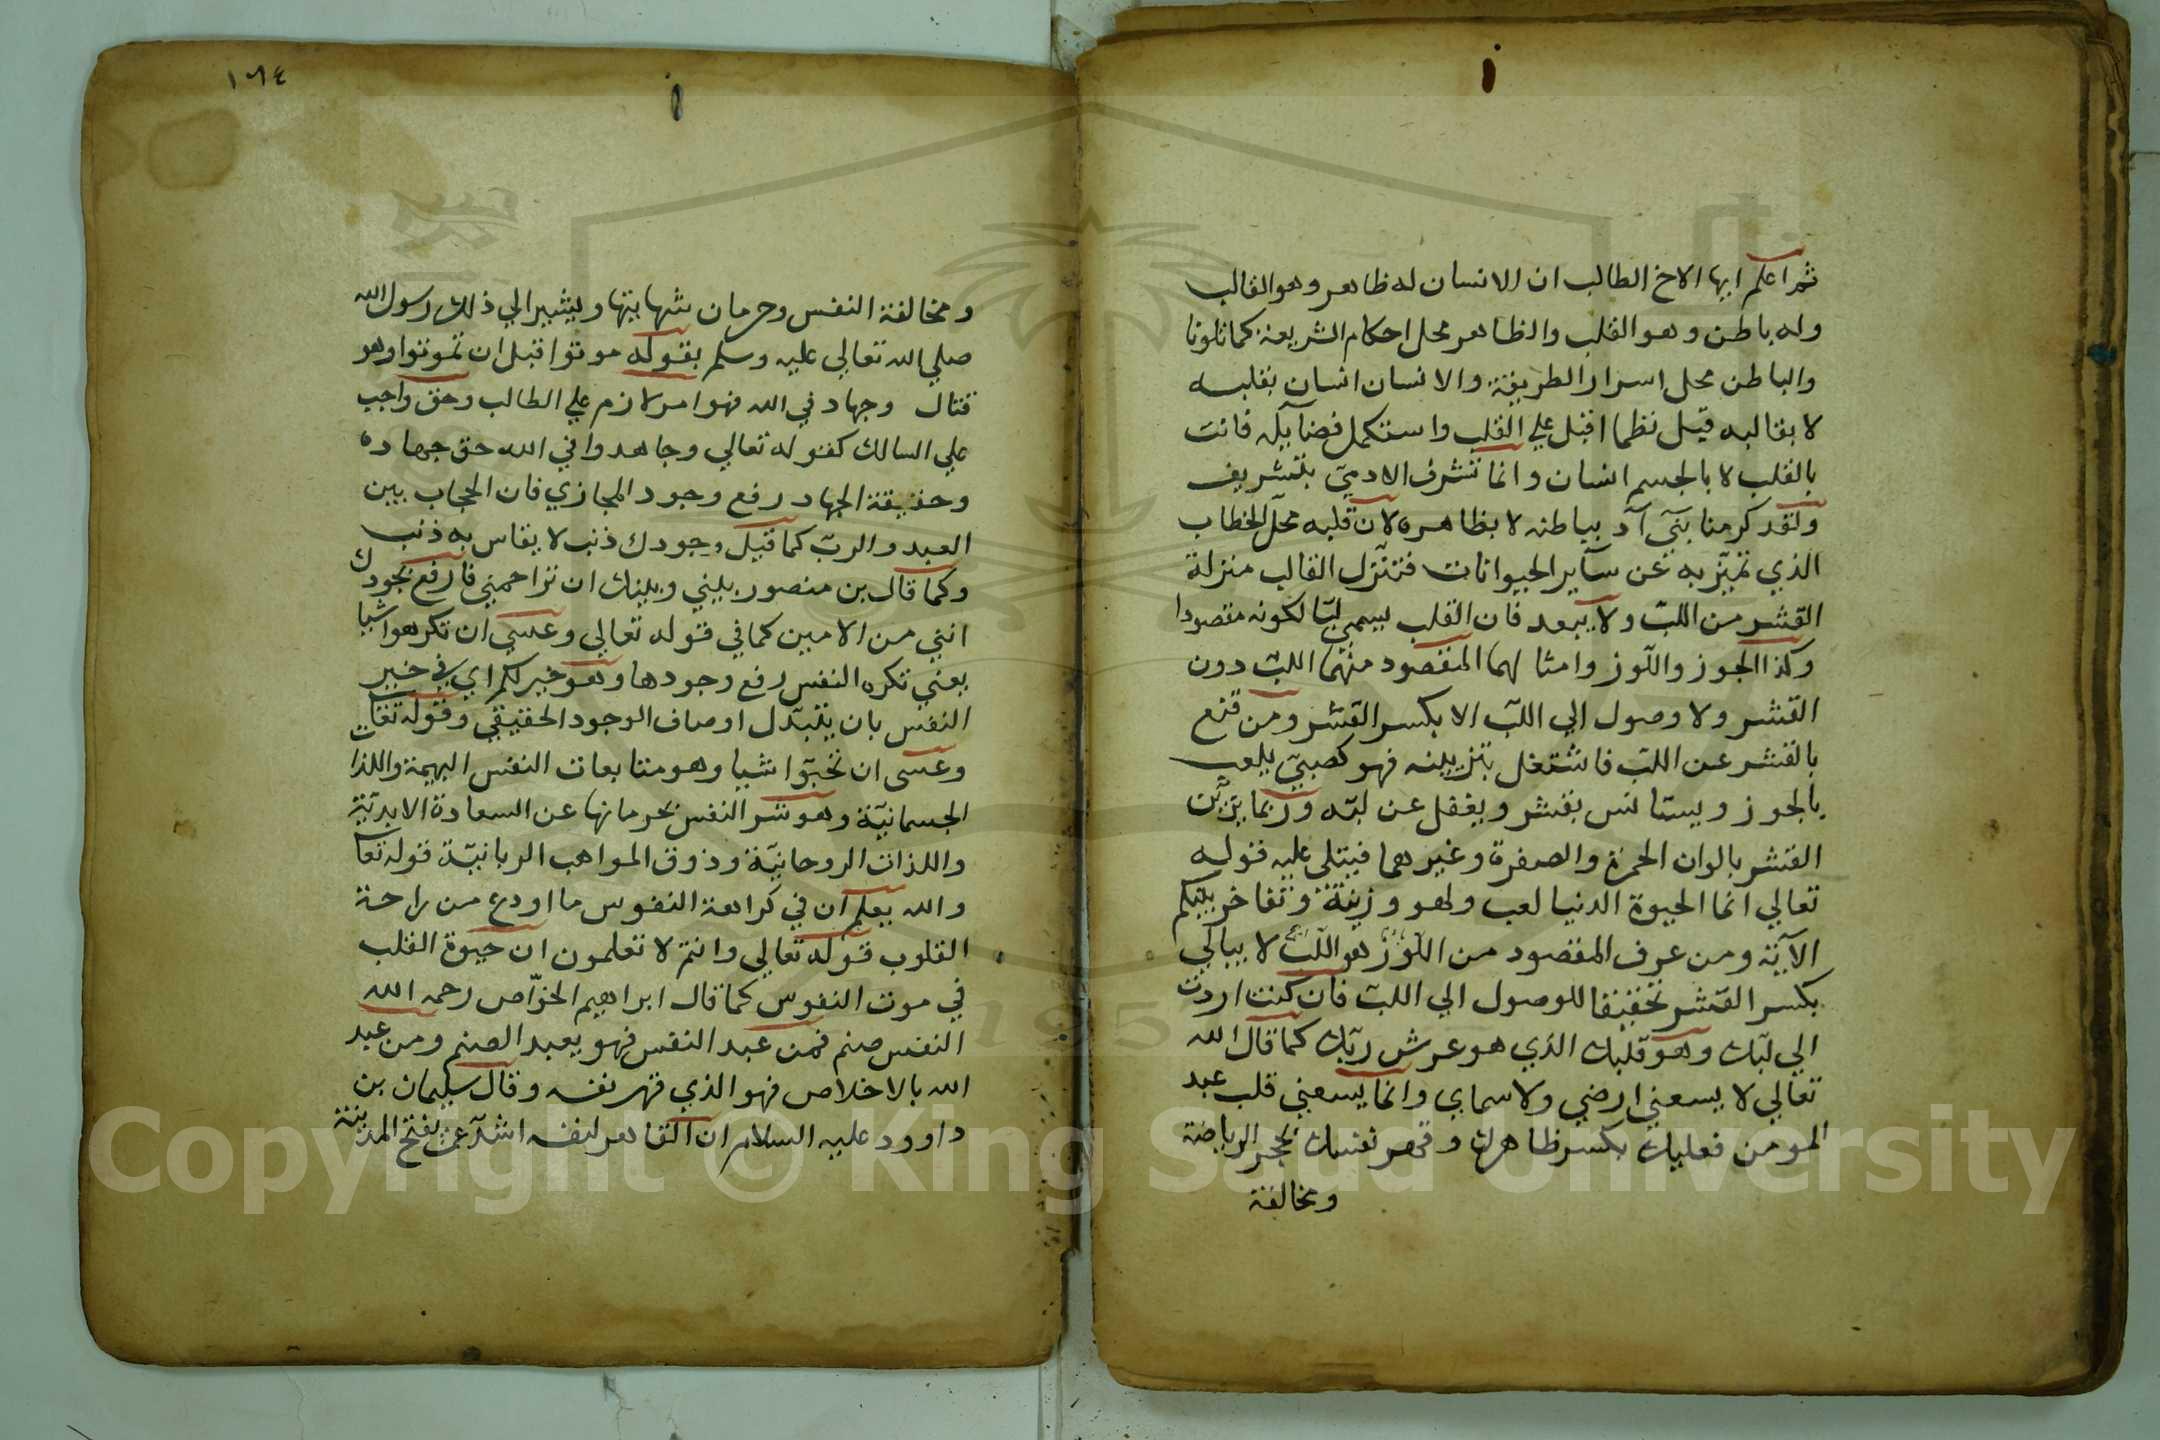 ثم اعلم ايها الاخ الطالب ان الانسان له ظاهر وهو القالب
وله باطن وهو القلب والظاهر محل احكام الشريعة كما تلونا
والباطن محل اسرار الطريقة والانسان انسان بقلبه
لا بقالبه قيل نظما اقبل علي القلب واستكمل فضايله فانت
بالقلب لا بالجسم انسان وانما تشرف الادميّ بتشريف
ولقد كرمنا بنيّ آد بباطنه لا بظاهره لان قلبه محل الخطاب
الذي تميّز به عن سآير الحيوانات فتنزّل القالب منزلة
القشر من اللبّ ولا يبعد فان القلب يسمي لبّا لكونه مقصودا
وكذا الجوز واللّوز وامثالهما المقصود منهما اللبّ دون
القشر ولا وصول الي اللبّ الا بكسر القشر ومن قنع
بالقشر عن اللبّ فاشتغل بتزيينه فهو كصبيّ يلعب
بالجوز ويستانس بقشر ويغفل عن لبّه وربما يزيّن
القشر بالوان الحمرة والصفرة وغيرهما فيتلي عليه قوله
تعالي انما الحيوة الدنيا لعب ولهو وزينة وتفاخر بينكم
الآية ومن عرف المقصود من اللّوز هو اللّبّ لا يبالي
بكسر القشر تخفيفا للوصول الي اللبّ فان كنت اردت
الي لبّك وهو قلبك الذي هو عرش ربّك كما قال الله
تعالي لا يسعني ارضي ولا سماي وانما يسعني قلب عبد
المومن فعليك بكسر ظاهرك وقهر نفسك بحجر الرياضة
ومخالفة
١٦٤
ومخالفة النفس وحرمان شهايتها ويشير الي ذلك رسول الله
صلي الله تعالي عليه وسلم بقوله موتوا قبل ان تموتوا وهو
قتال وجهاد في الله فهو امر لازم علي الطالب وحق واجب
علي السالك كقوله تعالي وجاهدوا في الله حق جهاده
وحقيقة الجهاد رفع وجود المجازي فان الحجاب بين
العبد والربّ كما قيل وجودك ذنب لا يقاس به ذنب
وكما قال بن منصور بيني وبينك ان تزاحمني فارفع بجودك
انني من الامين كما في قوله تعالي وعسي ان تكرهوا شيا
يعني تكره النفس رفع وجودها وهو خير لكم اي في خير
النفس بان يتبدّل اوصاف الوجود الحقيقي وقوله تعا
وعسي ان تحبّوا شيا وهو متابعات النفس البهيمة واللذات
الجسمانيّة وهو شر النفس بحرمانها عن السعادة الابديّة
واللذات الروحانيّة وذوق المواهب الربانيّة قوله تعا
والله يعلم ان في كراهة النفوس ما اودع من راحة
القلوب قوله تعالي وانتم لا تعلمون ان حيوة القلب
في موت النفوس كما قال ابراهيم الخوّاص رحمه الله
النفس صنم فمن عبد النفس فهو يعبد الصنم ومن عبد
الله بالاخلاص فهو الذي قهر نفسه وقال سليمان بن
داوود عليه السلام ان القاهر لنفسه اشدّ عمن يفتح المدينة
Copyright © King Saud University
1957